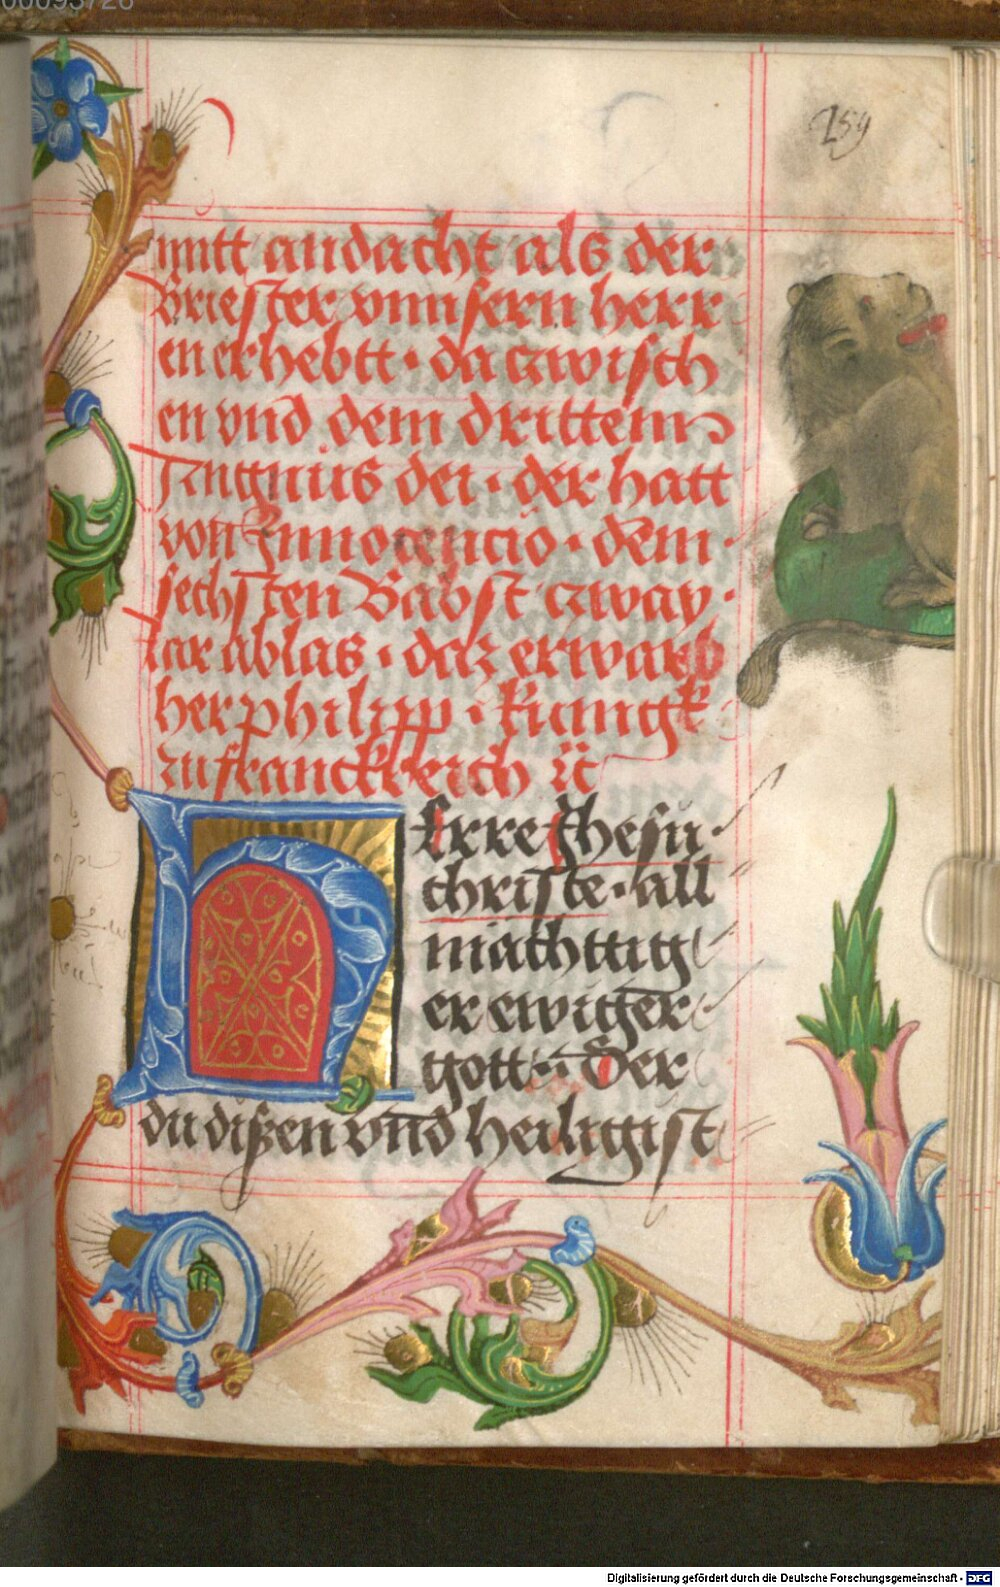 00095726
159
mitt andacht als der
Briester vnnsern herr
en erhebtt · da tzwisch
en vnd dem drittem
Angnus dei · der hatt
von Innocencio · dem
sechsten Babst tzway
iar ablas · daz erwarb
her philipp · kunigk
zu franckreich
HErre Jhesu
christe · all
mächttig
er ewiger
gott · der
du disßen vnd heiligist
Digitalisierung gefördert durch die Deutsche Forschungsgemeinschaft - DFG